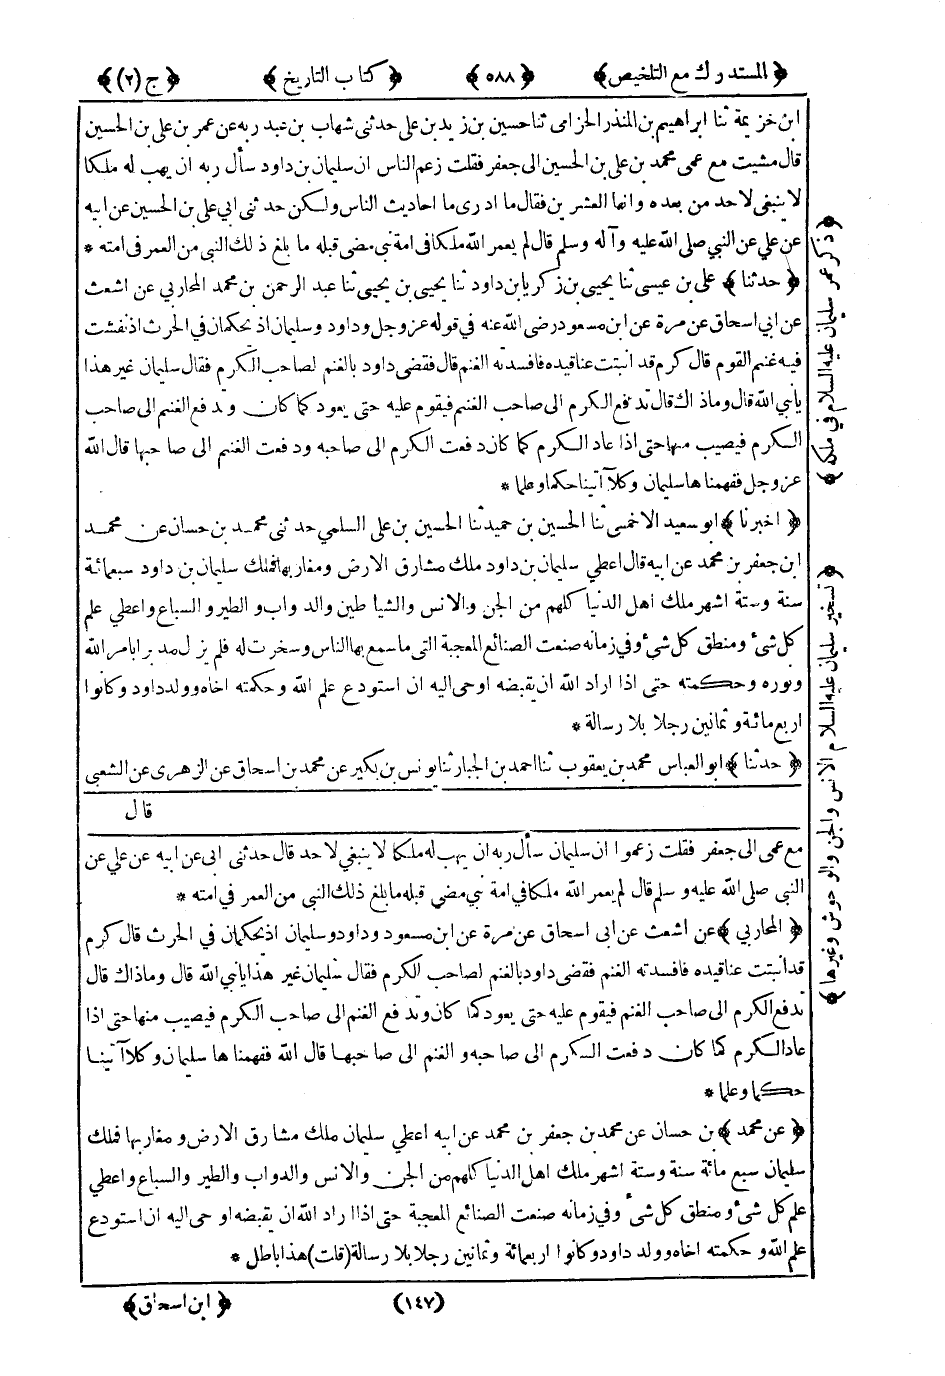 ﴿ المستدرك مع التلخيص ﴾ ﴿ ٥٨٨ ﴾ ﴿ كتاب التاريخ ﴾ ﴿ ج (٢) ﴾
ابن خزيمة ثنا ابراهيم بن المنذر الحزامى ثنا حسين بن زيد بن على حدثنى شهاب بن عبد ربه عن عمر بن على بن الحسين
قال مشيت مع عمى محمد بن على بن الحسين الى جعفر فقلت زعم الناس ان سليمان بن داود سأل ربه ان يهب له ملكا
لا ينبغى لاحد من بعده وانها العشرين فقال ما ادرى ما احاديث الناس ولكن حدثنى ابي على بن الحسين عن ابيه
عن علي عن النبي صلى الله عليه وآله وسلم قال لم يعمر الله ملكا فى امة نبى مضى قبله ما بلغ ذلك النبى من العمر فى امته *
﴿ حدثنا ﴾ على بن عيسى ثنا يحيى بن زكريا بن داود ثنا يحيى بن يحيى ثنا عبد الرحمن بن محمد المحاربي عن اشعث
عن ابي اسحاق عن مرة عن ابن مسعود رضى الله عنه في قوله عز وجل وداود وسليمان اذ يحكمان في الحرث اذ نفشت
فيه غنم القوم قال كرم قد انبتت عناقيده فافسدته الغنم قال فقضى داود بالغنم لصاحب الكرم فقال سليمان غير هذا
يانبي الله قال وما ذاك قال تدفع الكرم الى صاحب الغنم فيقوم عليه حتى يعود كما كان وتدفع الغنم الى صاحب
الكرم فيصيب منها حتى اذا عاد الكرم كما كان دفعت الكرم الى صاحبه ودفعت الغنم الى صاحبها قال الله
عز وجل ففهمناها سليمان وكلا آتينا حكما وعلما *
﴿ اخبرنا ﴾ ابو سعيد الاخمسى ثنا الحسين بن حميد ثنا الحسين بن على السلمي حدثنى محمد بن حسان عن محمد
ابن جعفر بن محمد عن ابيه قال اعطي سليمان بن داود ملك مشارق الارض ومغاربها فملك سليمان بن داود سبعمائة
سنة وستة اشهر ملك اهل الدنيا كلهم من الجن والانس والشياطين والدواب والطير والسباع واعطي علم
كل شئ ومنطق كل شئ وفي زمانه صنعت الصنائع المعجبة التى ما سمع بها الناس وسخرت له فلم يزل مدبرا بامر الله
ونوره وحكمته حتى اذا اراد الله ان يقبضه اوحى اليه ان استودع علم الله وحكمته اخاه وولد داود وكانوا
اربع مائة وثمانين رجلا بلا رسالة *
﴿ حدثنا ﴾ ابو العباس محمد بن يعقوب ثنا احمد بن الجبار ثنا يونس بن بكير عن محمد بن اسحاق عن الزهرى عن الشعبى
قال
مع عمى الى جعفر فقلت زعموا ان سليمان سأل ربه ان يهب له ملكا لا ينبغي لاحد قال حدثنى ابى عن ابيه عن علي عن
النبى صلى الله عليه وسلم قال لم يعمر الله ملكا في امة نبي مضي قبله ما بلغ ذلك النبى من العمر في امته *
﴿ المحاربي ﴾ عن اشعث عن ابى اسحاق عن مرة عن ابن مسعود وداود وسليمان اذ يحكمان في الحرث قال كرم
قد انبتت عناقيده فافسدته الغنم فقضى داود بالغنم لصاحب الكرم فقال سليمان غير هذا يانبي الله قال وما ذاك قال
تدفع الكرم الى صاحب الغنم فيقوم عليه حتى يعود كما كان وتدفع الغنم الى صاحب الكرم فيصيب منها حتى اذا
عاد الكرم كما كان دفعت الكرم الى صاحبه والغنم الى صاحبها قال الله ففهمناها سليمان وكلا آتينا
حكما وعلما *
﴿ عن محمد ﴾ بن حسان عن محمد بن جعفر بن محمد عن ابيه اعطي سليمان ملك مشارق الارض ومغاربها فملك
سليمان سبع مائة سنة وستة اشهر ملك اهل الدنيا كلهم من الجن والانس والدواب والطير والسباع واعطي
علم كل شئ ومنطق كل شئ وفي زمانه صنعت الصنائع المعجبة حتى اذا اراد الله ان يقبضه اوحى اليه ان استودع
علم الله وحكمته اخاه وولد داود وكانوا اربعمائة وثمانين رجلا بلا رسالة (قلت) هذا باطل *
﴿ ذكر عمر سليمان عليه السلام في ملكه ﴾
﴿ تسخير سليمان عليه السلام الانس والجن والوحوش وغيرها ﴾
(١٤٧) ﴿ ابن اسحاق ﴾